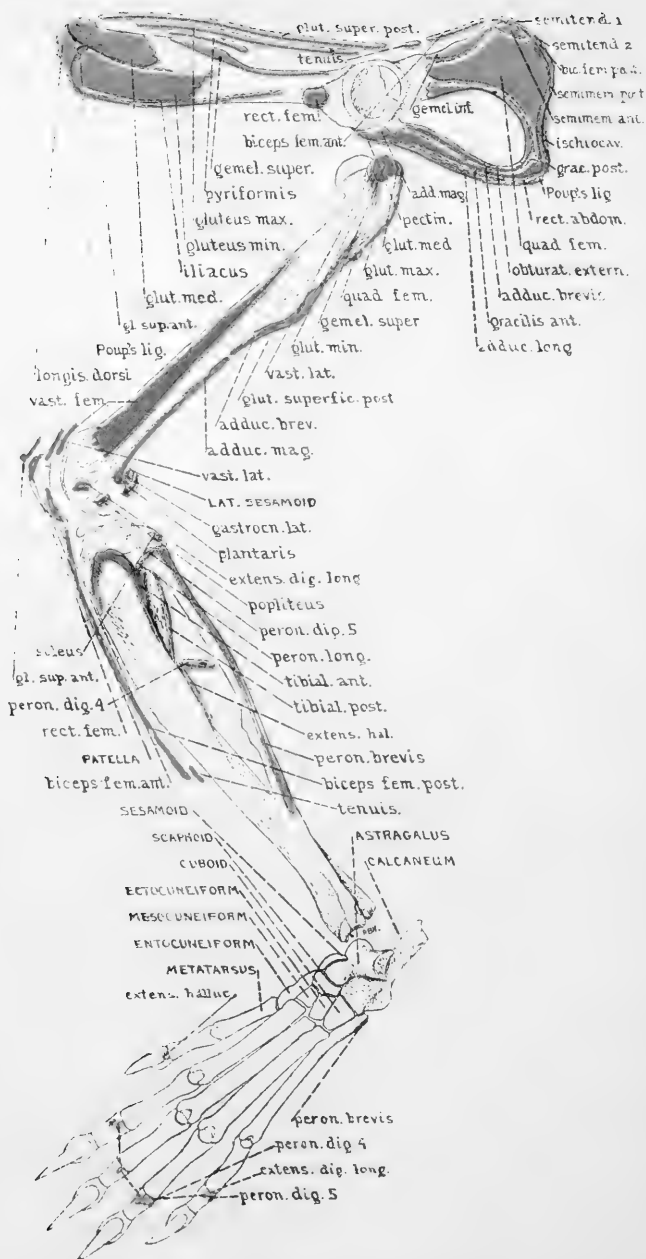 glut. super. post.
tenuis.
semitend. 1
semitend 2
bic. fem. post.
semimem post
semimem ant.
ischiocav.
grac. post.
Poup's lig
rect. abdom.
quad fem.
obturat. extern.
adduc. brevis
gracilis ant.
adduc. long
gemel. inf.
rect. fem.
biceps fem. ant.
gemel. super.
pyriformis
gluteus max.
gluteus min.
iliacus
glut. med.
gl. sup. ant.
Poup's lig.
longis. dorsi
vast. fem.
add. mag.
pectin.
glut. med
glut. max.
quad fem.
gemel. super
glut. min.
vast. lat.
glut. superfic. post
adduc. brev.
adduc. mag.
vast. lat.
LAT. SESAMOID
gastrocn. lat.
plantaris
extens. dig. long
popliteus
peron. dig. 5
peron. long.
tibial. ant.
tibial. post.
extens. hal.
peron. brevis
biceps fem. post.
tenuis.
soleus
gl. sup. ant.
peron. dig. 4
rect. fem.
PATELLA
biceps fem. ant.
SESAMOID
SCAPHOID
CUBOID
ECTOCUNEIFORM
MESOCUNEIFORM
ENTOCUNEIFORM
METATARSUS
extens. halluc.
ASTRAGALUS
CALCANEUM
peron. brevis
peron. dig 4
extens. dig. long.
peron. dig. 5